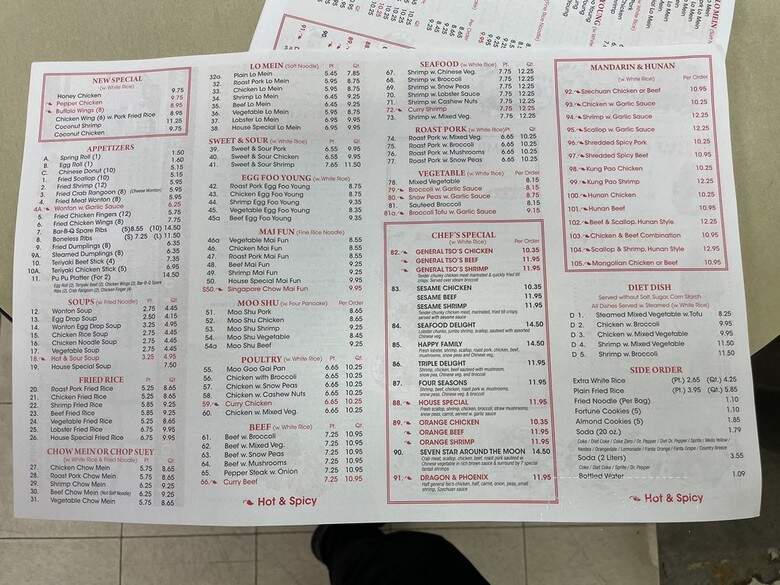 NEW SPECIAL
(w White Rice)
Honey Chicken 9.75
Pepper Chicken 9.75
Buffalo Wings (8) 8.95
Chicken Wing (8) w. Pork Fried Rice 8.95
Coconut Shrimp 11.25
Coconut Chicken 9.75
APPETIZERS
A. Spring Roll (1) 1.50
B. Egg Roll (1) 1.60
C. Chinese Donut (10) 5.15
1. Fried Scallop (10) 5.15
2. Fried Shrimp (12) 5.95
3. Fried Crab Rangoon (8) (Cheese Wonton) 5.95
4. Fried Meat Wonton (8) 5.95
4A. Wonton w. Garlic Sauce 6.25
5. Fried Chicken Fingers (12) 5.75
6. Fried Chicken Wings (8) 7.75
7. Bar-B-Q Spare Ribs (5)8.55 (10) 14.50
8. Boneless Ribs (S) 7.25 (L) 11.50
9. Fried Dumplings (8) 6.35
9A. Steamed Dumplings (8) 6.35
10. Teriyaki Beef Stick (4) 7.35
10A. Teriyaki Chicken Stick (5) 6.95
11. Pu Pu Platter (For 2) 14.50
Egg Roll (2), Teriyaki Beef (2), Chicken Wings (2), Bar-B-Q Spare
Ribs (2), Crab Rangoon (2), Chicken Finger (4)
SOUPS (w Fried Noodle) Pt Qt
12. Wonton Soup 2.75 4.45
13. Egg Drop Soup 2.50 4.15
14. Wonton Egg Drop Soup 3.25 4.95
15. Chicken Rice Soup 2.75 4.45
16. Chicken Noodle Soup 2.75 4.45
17. Vegetable Soup 2.75 4.45
18. Hot & Sour Soup 3.25 4.95
19. House Special Soup 7.50
FRIED RICE Pt Qt
20. Roast Pork Fried Rice 5.75 8.65
21. Chicken Fried Rice 5.75 8.65
22. Shrimp Fried Rice 5.85 9.25
23. Beef Fried Rice 5.85 9.25
24. Vegetable Fried Rice 5.25 8.65
25. Lobster Fried Rice 6.75 9.95
26. House Special Fried Rice 6.75 9.95
CHOW MEIN OR CHOP SUEY
(w White Rice & Fried Noodle) Pt Qt
27. Chicken Chow Mein 5.75 8.65
28. Roast Pork Chow Mein 5.75 8.65
29. Shrimp Chow Mein 6.25 9.25
30. Beef Chow Mein (Not Soft Noodle) 6.25 9.25
31. Vegetable Chow Mein 5.75 8.65
LO MEIN (Soft Noodle) Pt. Qt.
32a. Plain Lo Mein 5.45 7.85
32. Roast Pork Lo Mein 5.95 8.95
33. Chicken Lo Mein 5.95 8.95
34. Shrimp Lo Mein 6.45 9.25
35. Beef Lo Mein 6.45 9.25
36. Vegetable Lo Mein 5.95 8.95
37. Lobster Lo Mein 6.95 9.95
38. House Special Lo Mein 6.95 9.95
SWEET & SOUR (w White Rice)
39. Sweet & Sour Pork 6.55 9.95
40. Sweet & Sour Chicken 6.55 9.95
41. Sweet & Sour Shrimp 7.65 11.50
EGG FOO YOUNG (w White Rice)
42. Roast Pork Egg Foo Young 8.75
43. Chicken Egg Foo Young 8.75
44. Shrimp Egg Foo Young 9.35
45. Vegetable Egg Foo Young 8.35
45a. Beef Egg Foo Young 9.35
MAI FUN (Fine Rice Noodle)
46a. Vegetable Mai Fun 8.55
46. Chicken Mai Fun 8.55
47. Roast Pork Mai Fun 8.55
48. Beef Mai Fun 9.25
49. Shrimp Mai Fun 9.25
50. House Special Mai Fun 9.95
S50. Singapore Chow Mai Fun 9.95
MOO SHU (w Four Pancake) Per Order
51. Moo Shu Pork 8.75
52. Moo Shu Chicken 8.75
53. Moo Shu Shrimp 9.25
54. Moo Shu Vegetable 8.45
54a. Moo Shu Beef 9.25
POULTRY (w White Rice) Pt. Qt.
55. Moo Goo Gai Pan 6.65 10.25
56. Chicken with Broccoli 6.65 10.25
57. Chicken w. Snow Peas 6.65 10.25
58. Chicken w. Cashew Nuts 6.65 10.25
59. Curry Chicken 6.65 10.25
60. Chicken w. Mixed Veg. 6.65 10.25
BEEF (w White Rice) Pt. Qt.
61. Beef w. Broccoli 7.25 10.95
62. Beef w. Mixed Veg. 7.25 10.95
63. Beef w. Snow Peas 7.25 10.95
64. Beef w. Mushrooms 7.25 10.95
65. Pepper Steak w. Onion 7.25 10.95
66. Curry Beef 7.25 10.95
Hot & Spicy
SEAFOOD (w White Rice) Pt. Qt.
67. Shrimp w. Chinese Veg. 7.75 12.25
68. Shrimp w. Broccoli 7.75 12.25
69. Shrimp w. Snow Peas 7.75 12.25
70. Shrimp w. Lobster Sauce 7.75 12.25
71. Shrimp w. Cashew Nuts 7.75 12.25
72. Curry Shrimp 7.75 12.25
73. Shrimp w. Mixed Veg. 7.75 12.25
ROAST PORK (w White Rice) Pt. Qt.
74. Roast Pork w. Mixed Veg. 6.65 10.25
75. Roast Pork w. Broccoli 6.65 10.25
76. Roast Pork w. Mushrooms 6.65 10.25
77. Roast Pork w. Snow Peas 6.65 10.25
VEGETABLE (w White Rice)
78. Mixed Vegetable 8.15
79. Broccoli w. Garlic Sauce 8.15
80. Snow Peas w. Garlic Sauce 8.75
81. Sauteed Broccoli 8.15
81a. Broccoli Tofu w. Garlic Sauce 9.15
CHEF'S SPECIAL
(w White Rice) Per Order
82. GENERAL TSO'S CHICKEN 10.35
GENERAL TSO'S BEEF 11.95
GENERAL TSO'S SHRIMP 11.95
Tender chunky chicken meat, marinated & quickly fried till
crisps. Served over steam broccoli
83. SESAME CHICKEN 10.35
SESAME BEEF 11.95
SESAME SHRIMP 11.95
Tender chunky chicken meat, marinated, fried till crisps,
served with sesame sauce
84. SEAFOOD DELIGHT 14.50
Lobster chunks, jumbo shrimp, scallop, sauteed with assorted
Chinese veg.
85. HAPPY FAMILY 14.50
Fresh lobster, shrimp, scallop, roast pork, chicken, beef,
mushrooms, snow peas and Chinese veg.
86. TRIPLE DELIGHT 11.95
Shrimp, chicken, beef sauteed with mushroom,
snow pea, Chinese veg. and broccoli
87. FOUR SEASONS 11.95
Shrimp, beef, chicken, roast pork w. mushrooms,
snow peas, Chinese veg. & broccoli
88. HOUSE SPECIAL 11.95
Fresh scallop, shrimp, chicken, broccoli, straw mushrooms
snow peas, carrot, served w. garlic sauce
89. ORANGE CHICKEN 10.35
ORANGE BEEF 11.95
ORANGE SHRIMP 11.95
90. SEVEN STAR AROUND THE MOON 14.50
Crab meat, scallop, chicken, beef, roast pork sauteed w.
Chinese vegetable in rich brown sauce & surround by 7 special
fantail shrimps
91. DRAGON & PHOENIX 11.95
Half general tso's chicken, half, carrot, onion, peas, small
shrimp, Szechuan sauce
MANDARIN & HUNAN
(w White Rice) Per Order
92. Szechuan Chicken or Beef 10.95
93. Chicken w. Garlic Sauce 10.95
94. Shrimp w. Garlic Sauce 12.25
95. Scallop w. Garlic Sauce 12.25
96. Shredded Spicy Pork 10.95
97. Shredded Spicy Beef 10.95
98. Kung Pao Chicken 10.95
99. Kung Pao Shrimp 12.25
100. Hunan Chicken 10.95
101. Hunan Beef 10.95
102. Beef & Scallop, Hunan Style 12.25
103. Chicken & Beef Combination 10.95
104. Scallop & Shrimp, Hunan Style 12.25
105. Mongolian Chicken or Beef 10.95
DIET DISH
Served without Salt, Sugar, Corn Starch
All Dishes Served w. Steamed (w. White Rice)
D 1. Steamed Mixed Vegetable w.Tofu 8.25
D 2. Chicken w. Broccoli 9.95
D 3. Chicken w. Mixed Vegetable 9.95
D 4. Shrimp w. Mixed Vegetable 11.50
D 5. Shrimp w. Broccoli 11.50
SIDE ORDER
Extra White Rice (Pt.) 2.65 (Qt.) 4.25
Plain Fried Rice (Pt.) 3.95 (Qt.) 5.85
Fried Noodle (Per Bag) 1.10
Fortune Cookies (5) 1.10
Almond Cookies (5) 1.85
Soda (20 oz.) 1.79
Coke / Diet Coke / Coke Zero / Dr. Pepper / Diet Dr. Pepper / Sprite / Mello Yellow /
Nestea / Orangelade / Lemonade / Fanta Orange / Fanta Grape / Country Breeze
Soda (2 Liters) 3.55
Coke / Diet Coke / Sprite / Dr. Pepper
Bottled Water 1.09
Hot & Spicy